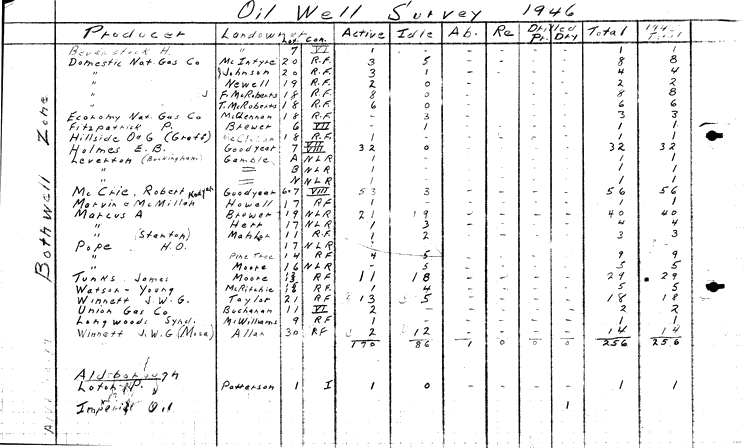 Oil Well Survey 1946
Producer Landowner Lot. Con. Active Idle Ab. Re Drilled Pr. Dry Total 194- Total
Bothwell Zone
Beverstock H. " 7 VI 1 - - - - - 1 1
Domestic Nat. Gas Co McIntyre 20 R.F. 3 5 - - - - 8 8
" Johnson 20 R.F. 3 1 - - - - 4 4
" Newell 19 R.F. 2 0 - - - - 2 2
" F. McRoberts 18 R.F. 8 0 - - - - 8 8
" T. McRoberts 18 R.F. 6 0 - - - - 6 6
Economy Nat. Gas Co McKennon 18 R.F. - 3 - - - - 3 3
Fitzpatrick P. Brewer 6 VII - 1 - - - - 1 1
Hillside O&G (Graff) 18 R.F. 1 - - - - - 1 1
Holmes E. B. Goodyear 7 VIII 32 0 - - - - 32 32
Leverton (Buckingham) Gamble A NLR 1 - - - - - 1 1
" = B NLR 1 - - - - - 1 1
" = N NLR 1 - - - - - 1 1
McCrie, Robert Goodyear 6-7 VIII 53 3 - - - - 56 56
Marvin & McMillan Howell 17 RF 1 - - - - - 1 1
Marcus A Brewer 19 NLR 21 19 - - - - 40 40
" Herr 17 NLR 1 3 - - - - 4 4
" (Stanton) Mahler 11 R.F. 1 2 - - - - 3 3
Pope H.O. 17 NLR 1 -
" Pine Tree 14 RF 4 5 - - - - 9 9
" Moore 16 NLR - 5 - - - - 5 5
Tunks, James Moore RF 11 18 - - - - 29 29
Watson-Young McRitchie RF 1 4 - - - - 5 5
Winnett J.W.G. Taylor 21 RF 13 5 - - - - 18 18
Union Gas Co Buchanan 11 VI 2 - - - - - 2 2
Longwoods Synd. McWilliams 9 RF 1 - - - - - 1 1
Winnett J.W.G (Mosa) Allan 30 RF 2 12 - - - - 14 14
170 86 1 0 0 0 256 256
Aldborough
Patterson 1 I 1 0 - - - - 1 1
Imperial Oil 1